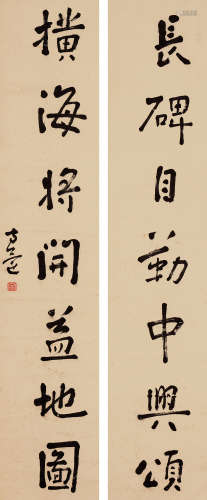 長碑自勒中興頌
橫海將開益地圖